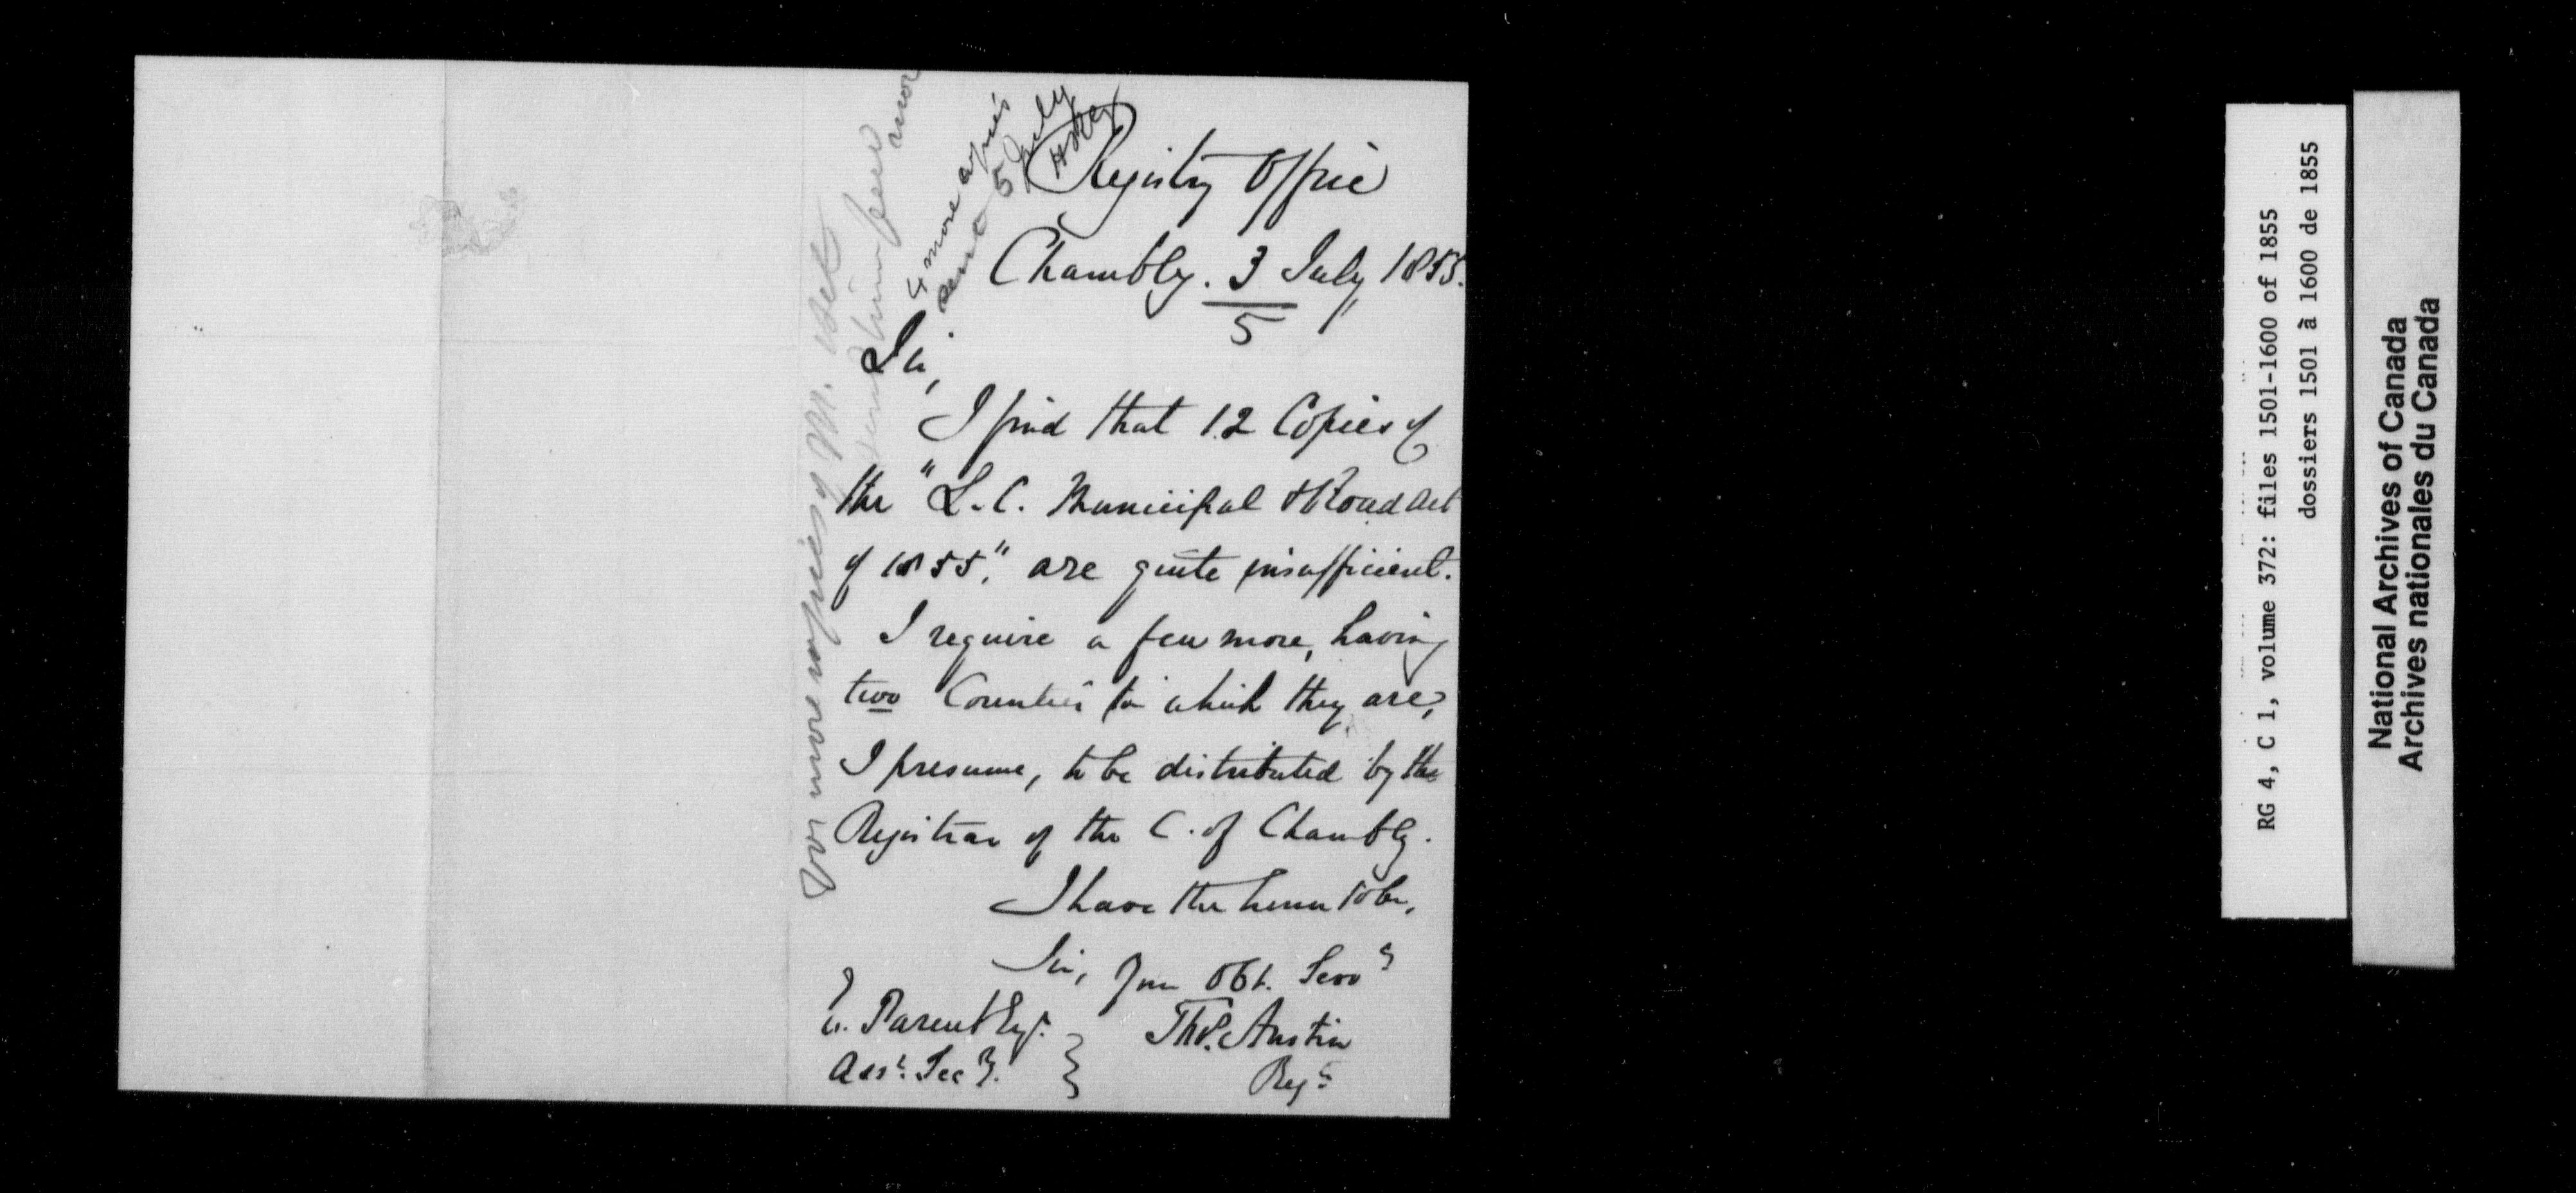 4 more copies
sent 5 July
Registry Office
Chambly. 3 July, 1855.
5
Sir,
I find that 12 Copies of
the "L.C. Municipal & Road Act
of 1855," are quite insufficient.
I require a few more, having
two Counties in which they are,
I presume, to be distributed by the
Registrar of the C. of Chambly.
I have the honor to be,
Sir, Your Obt. Servt
Ths. Austin
Regr
E. Parent Esqr.
Asst. Secy.
For more copies of M. Act
send him few more
RG 4, C 1, volume 372: files 1501-1600 of 1855
dossiers 1501 à 1600 de 1855
National Archives of Canada
Archives nationales du Canada